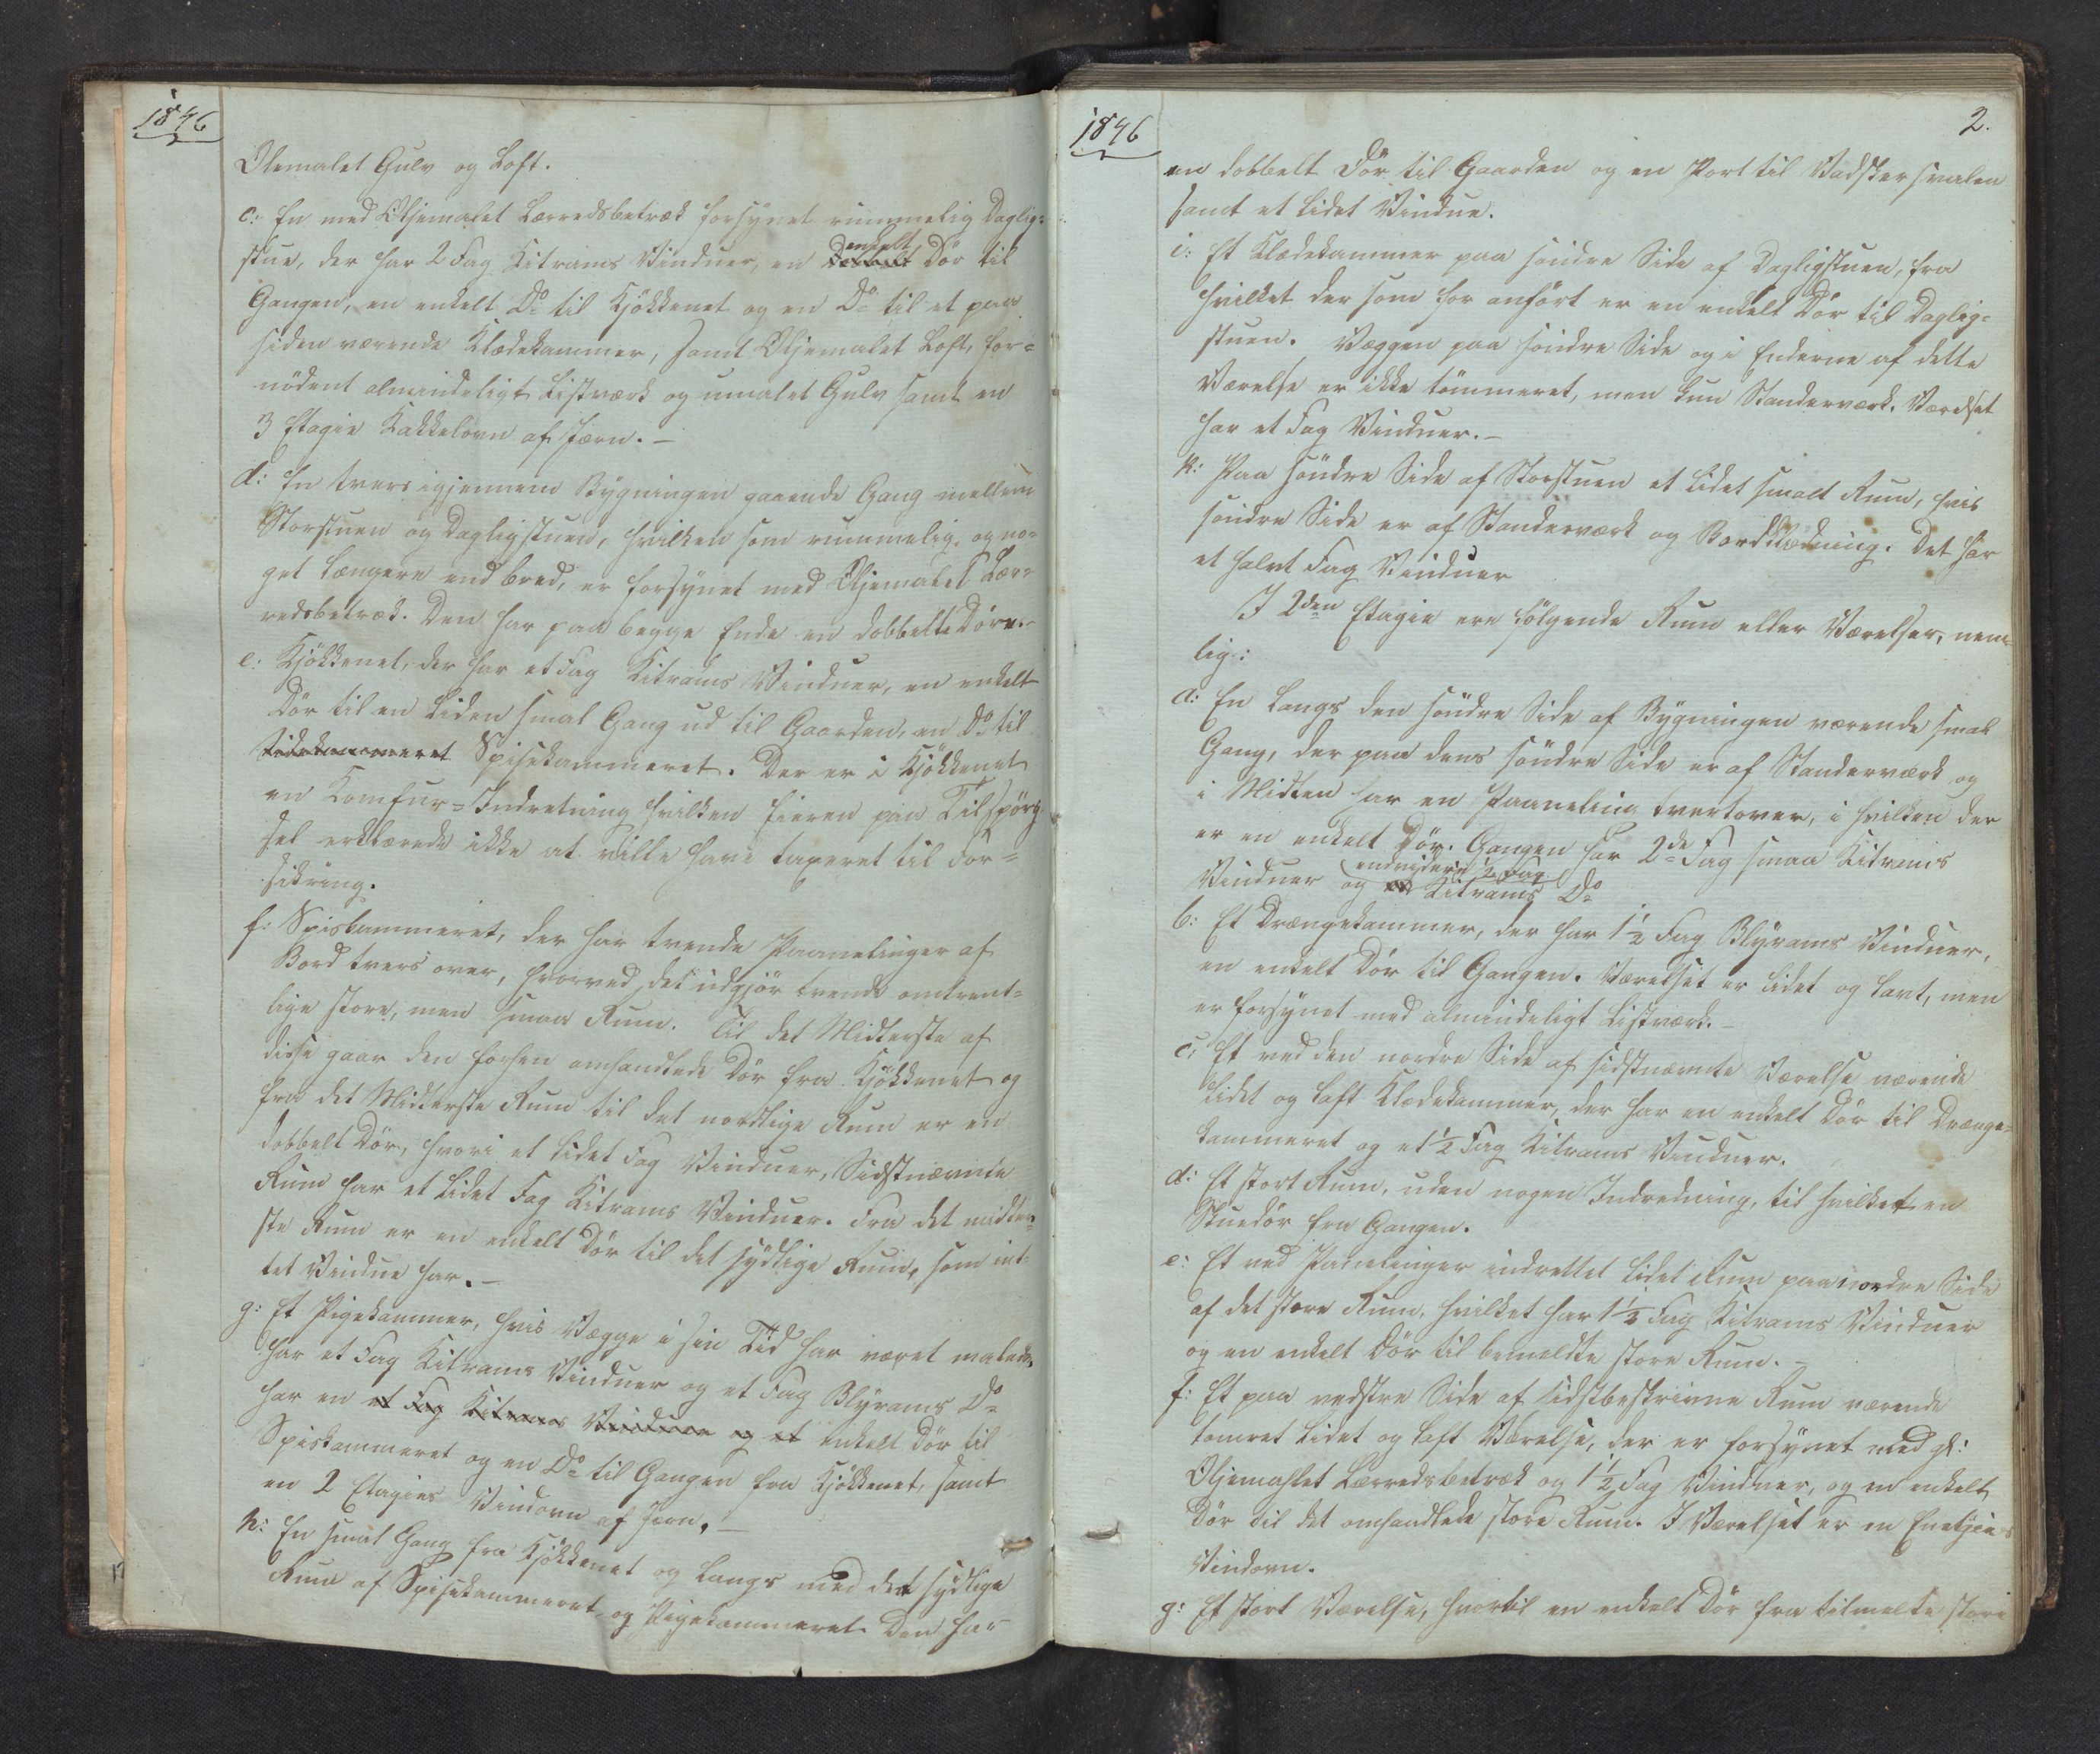 1846
Olemalet Gulv og Loft.
c: En med Oljemalet Lærredsbetræk forsynet rummelig Daglig-
stue, der har 2 Fag Kitrams Vinduer, en dobbelt enkelt Dör til
Gangen, en enkelt Do til Kjökkenet og en Do til et paa
Siden værende Klædekammer, samt Oljemalet Loft, for-
nödent almindeligt Listværk og umalet Gulv samt en
3 Etagie Kakkelovn af Jærn. -
d: En tvers igjennem Bygningen gaaende Gang mellem
Storstuen og Dagligstuen, hvilken som rummelig, og no-
get længere end bred, er forsynet med Oljemalet Lær-
redsbetræk. Den har paa begge Ende en dobbelte Döre. -
e: Kjökkenet, der har et Fag Kitrams Vinduer, en enkelt
Dör til en liden smal Gang ud til Gaarden, en Do til
Sidekammeret Spisekammeret. Der er i Kjökkenet
en Komfur-Indretning hvilken Eieren paa Tilspörg-
sel erklærede ikke at ville have taxeret til For-
sikring.
f: Spiskammeret, der har tvende Paanelinger af
Bord tvers over, hvorved det udgjör trende omtrent-
lige store, men smaa Rum. Til det Midterste af
disse gaar den forhen omhandlede Dör fra Kjökkenet og
fra det Midterste Rum til det nordlige Rum er en
dobbelt Dör, hvori et lidet Fag Vinduer, Sidstnævnte
Rum har et lidet Fag Kitrams Vinduer. Fra det midter-
ste Rum er en enkelt Dör til det sydlige Rum, som in-
tet Vindue har. -
g: Et Pigekammer, hvis Vægge i sin Tid har været malede,
har et Fag Kitrams Vinduer og et Fag Blyrams Do
har en et Fag Kitrams Vinduer og et enkelt Dör til
Spiskammeret og en Do til Gangen fra Kjökkenet, samt
en 2 Etagies Vindovn af Jern. -
h: En smal Gang fra Kjökkenet og langs med det sydlige
Rum af Spisekammeret og Pigekammeret. Den har
1846
2.
en dobbelt Dör til Gaarden og en Port til Vadskersvalen
samt et lidet Vindue.
i: Et Klædekammer paa söndre Side af Dagligstuen, fra
hvilket der som for anfört er en enkelt Dör til Daglig-
stuen. Væggen paa söndre Side og i Enderne af dette
Værelse er ikke tömmeret, men kun Standerværk. Værelset
har et Fag Vinduer. -
k: Paa söndre Side af Storstuen et lidet smalt Rum, hvis
söndre Side er af Standerværk og Bordklædning. Det har
et halvt Fag Vinduer
I 2den Etagie ere fölgende Rum eller Værelser, nem-
lig:
a: En langs den söndre Side af Bygningen værende smal
Gang, der paa dens söndre Side er af Standerværk og
i Midten har en Paaneling tvertover, i hvilken der
er en enkelt Dör. Gangen har 2de Fag smaa Kitrams
Vinduer og endvidere ½ Fag Kitrams Do
b: Et Drængekammer, der har 1½ Fag Blyrams Vinduer,
en enkelt Dör til Gangen. Værelset er lidet og lavt, men
er forsynet med almindeligt Listværk. -
c: Et ved den nordre Side af sidstnævnte Værelse værende
lidet og laft Klædekammer, der har en enkelt Dör til Drænge-
kammeret og et ½ Fag Kitrams Vinduer.
d: Et stort Rum, uden nogen Indredning, til hvilket en
Stuedör fra Gangen.
e: Et ved Panelinger indrettet lidet Rum paa nordre Side
af det store Rum, hvilket har 1½ Fag Kitrams Vinduer
og en enkelt Dör til bemeldte store Rum. -
f: Et paa vestre Side af sidstbeskrivne Rum værende
tömret lidet og laft Værelse, der er forsynet med gl:
Oljemahlet Lærredsbetræk og 1½ Fag Vinduer, og en enkelt
Dör til det omhandlede store Rum. I Værelset er en Enetgies
Vindovn.
g: Et stort Værelse, hvortil en enkelt Dör fra bemelte store